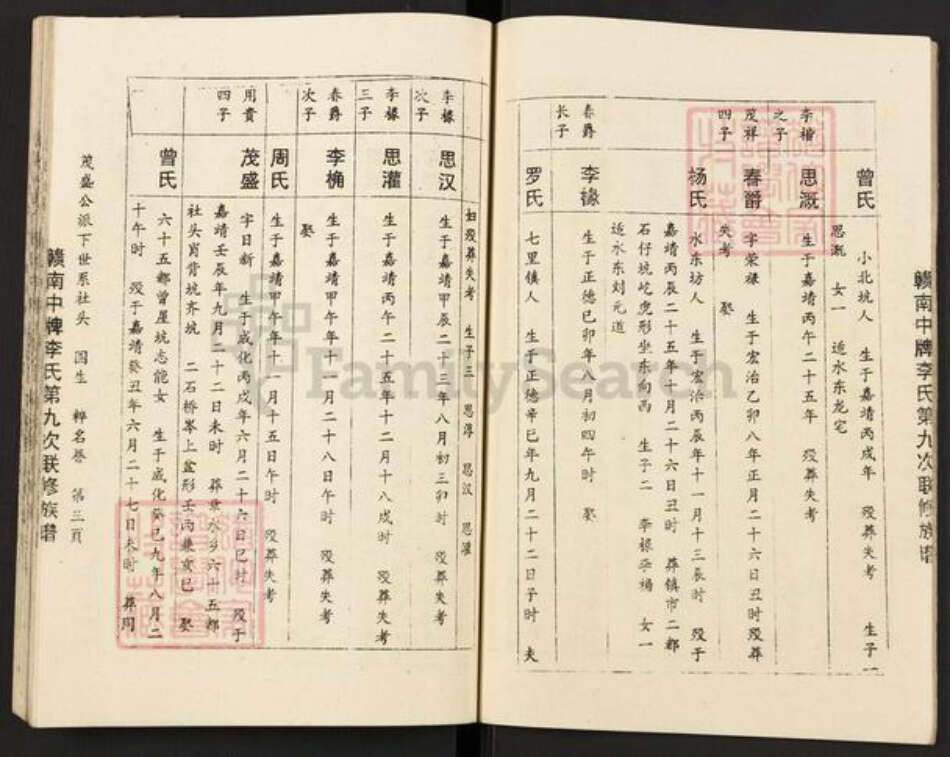 赣南中牌李氏第九次联修族谱
曾氏 小北坑人 生于嘉靖丙戌年 殁葬失考 生子一
思溉 女一 适水东龙宅
李楷之子 思溉 生于嘉靖丙午二十五年 殁葬失考
茂祥四子 春爵 字荣禄 生于宏治乙卯八年正月二十六日丑时殁葬
失考 娶
杨氏 水东坊人 生于宏治丙辰年十一月十三辰时 殁于
嘉靖丙辰二十五年十月二十六日丑时 葬镇市二都
石仔坑屹虎形坐东向西 生子二 李椽李桷 女一
适水东刘元道
春爵长子 李椽 生于正德己卯年八月初四午时 娶
罗氏 七里镇人 生于正德辛巳年九月二十二日子时 夫
妇殁葬失考 生子三 思淳 思汉 思灌
李椽次子 思汉 生于嘉靖甲辰二十三年八月初三卯时 殁葬失考
李椽三子 思灌 生于嘉靖丙午二十五年十二月十八戌时 殁葬失考
春爵次子 李桷 生于嘉靖甲午年十一月二十八日午时 殁葬失考
娶
周氏 生于嘉靖甲午年十一月十五日午时 殁葬失考
用贵四子 茂盛 字日新 生于成化丙戌年六月二十六日巳时 殁于
嘉靖壬辰年九月二十二日未时 葬章水乡六十五都
社头肖背坑齐坑 二石桥岑上盆形壬丙兼亥巳 娶
曾氏 六十五都曾屋坑志能女 生于成化癸巳九年八月二
十午时 殁于嘉靖癸丑年六月二十七日未时 葬同
茂盛公派下世系社头 圆生 粹名誉 第三页
赣南中牌李氏第九次联修族谱
FamilySearch